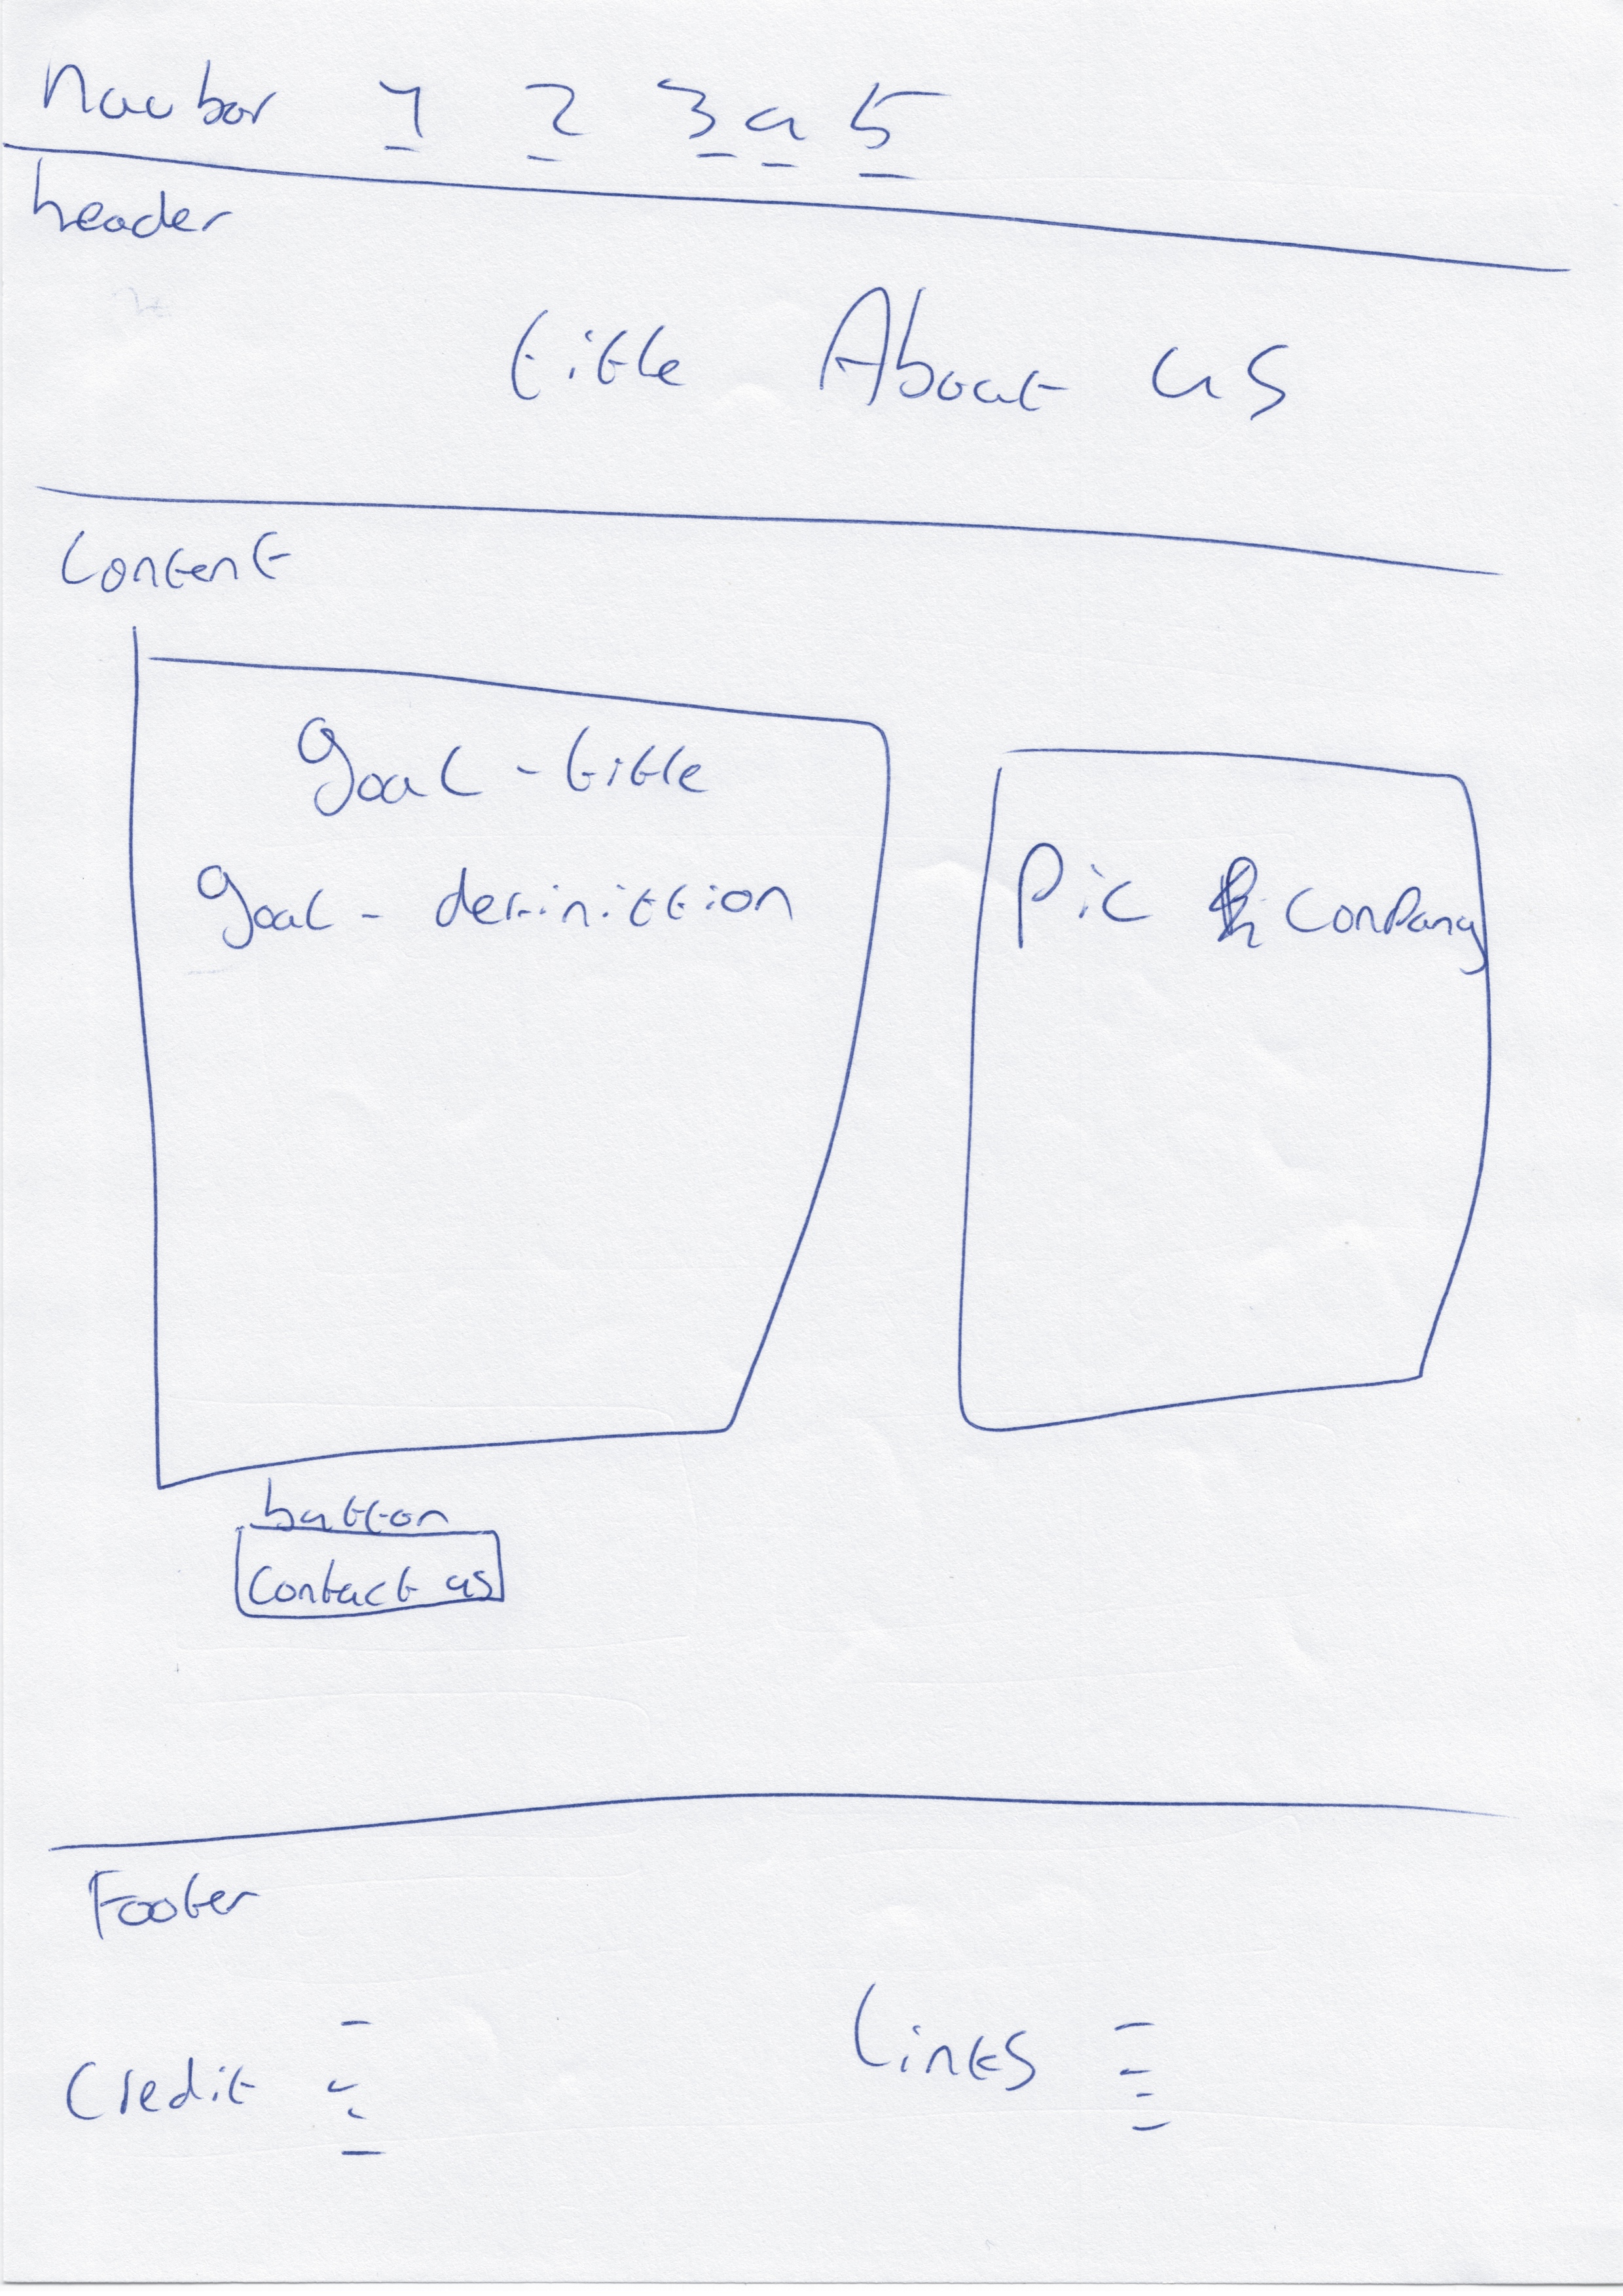 Navbar 1 2 3 4 5
header
title About us
Content
goal - title
goal - definittion
Pic Company
button
Contact us
Footer
Credit
Links